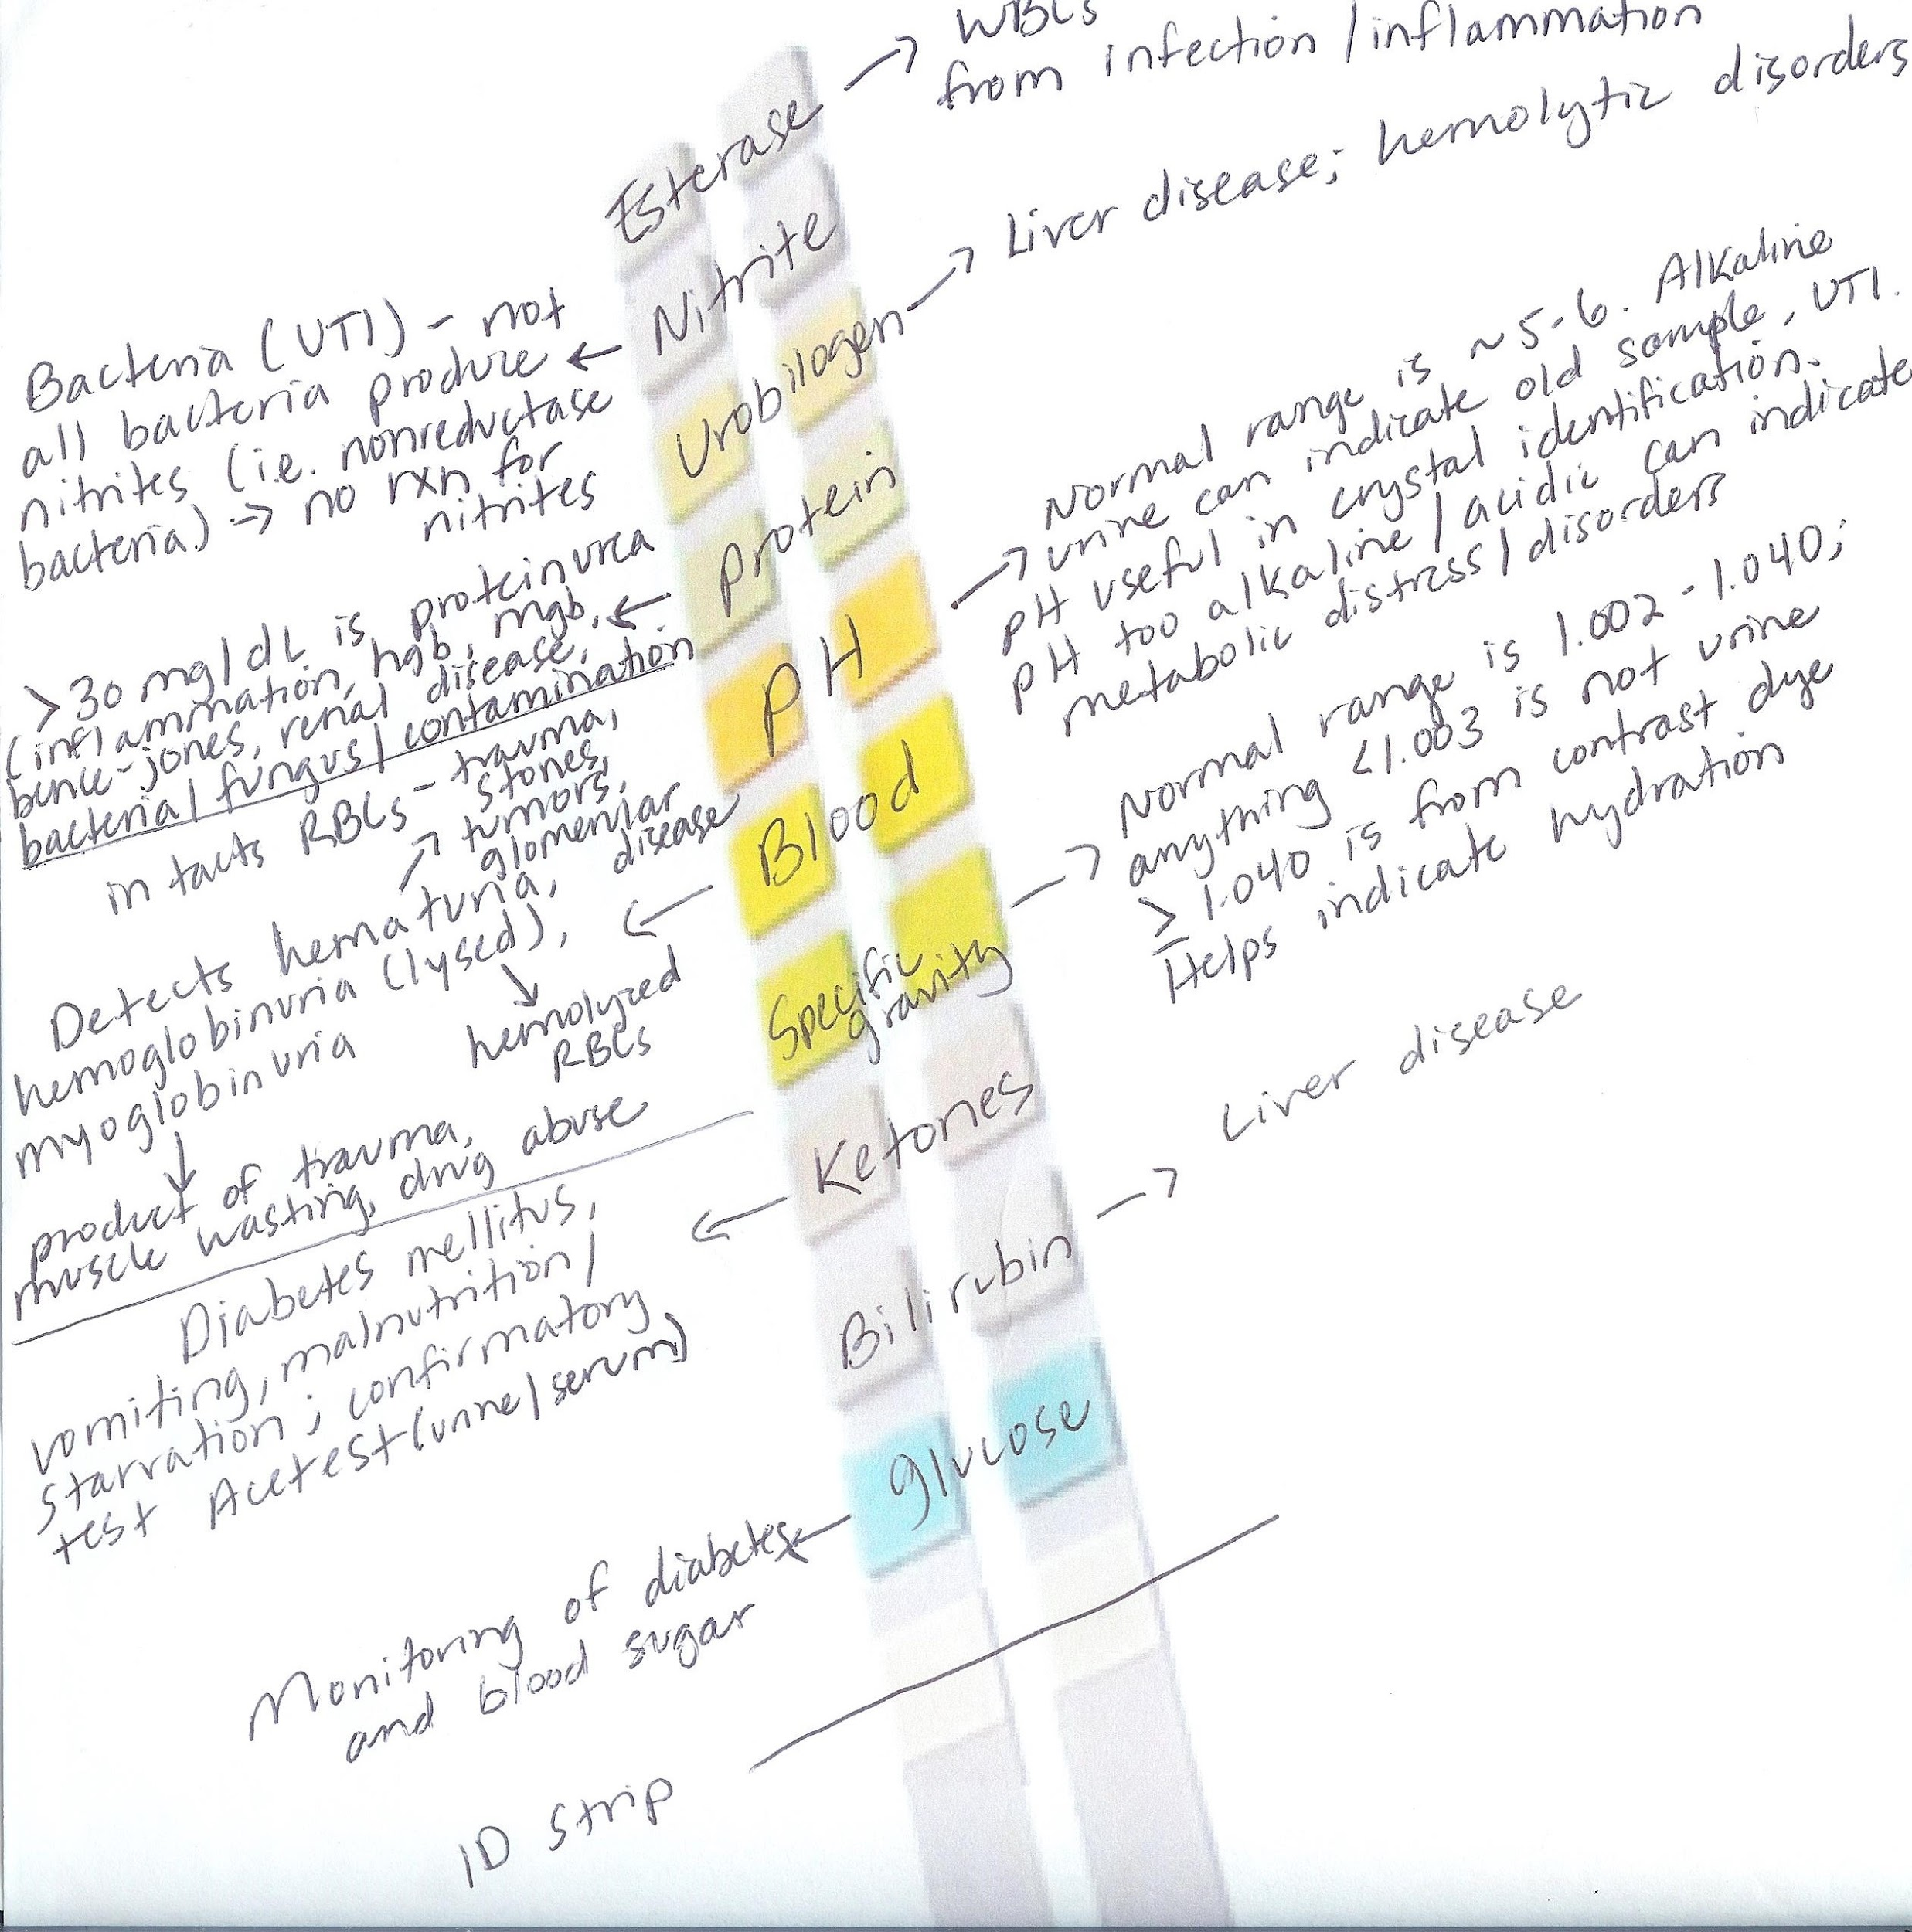 WBCs
from infection / inflammation
Esterase
Nitrite
Bacteria (UTI) - not
all bacteria produce
nitrites (i.e. nonreductase
bacteria) -> no rxn for
nitrites
Urobilogen
Liver disease; hemolytic disorders
Protein
>30 mg/dL is proteinurea
(inflammation, hgb, mgb,
bence-jones, renal disease,
bacterial fungus/contamination
pH
Normal range is ~5-6. Alkaline
urine can indicate old sample, UTI.
pH useful in crystal identification.
pH too alkaline/acidic can indicate
metabolic distress/disorders
Blood
in tacts RBCs - trauma,
stones,
tumors,
glomerular
disease
Detects hematuria,
hemoglobinuria (lysed),
myoglobinuria
hemolyzed
RBCs
product of trauma,
muscle wasting, drug abuse
Specific
gravity
Normal range is 1.002 - 1.040;
anything <1.003 is not urine
≥ 1.040 is from contrast dye
Helps indicate hydration
Ketones
Diabetes mellitus,
vomiting, malnutrition/
starvation; confirmatory
test Acetest (urine/serum)
Bilirubin
Liver disease
glucose
Monitoring of diabetes
and blood sugar
ID Strip